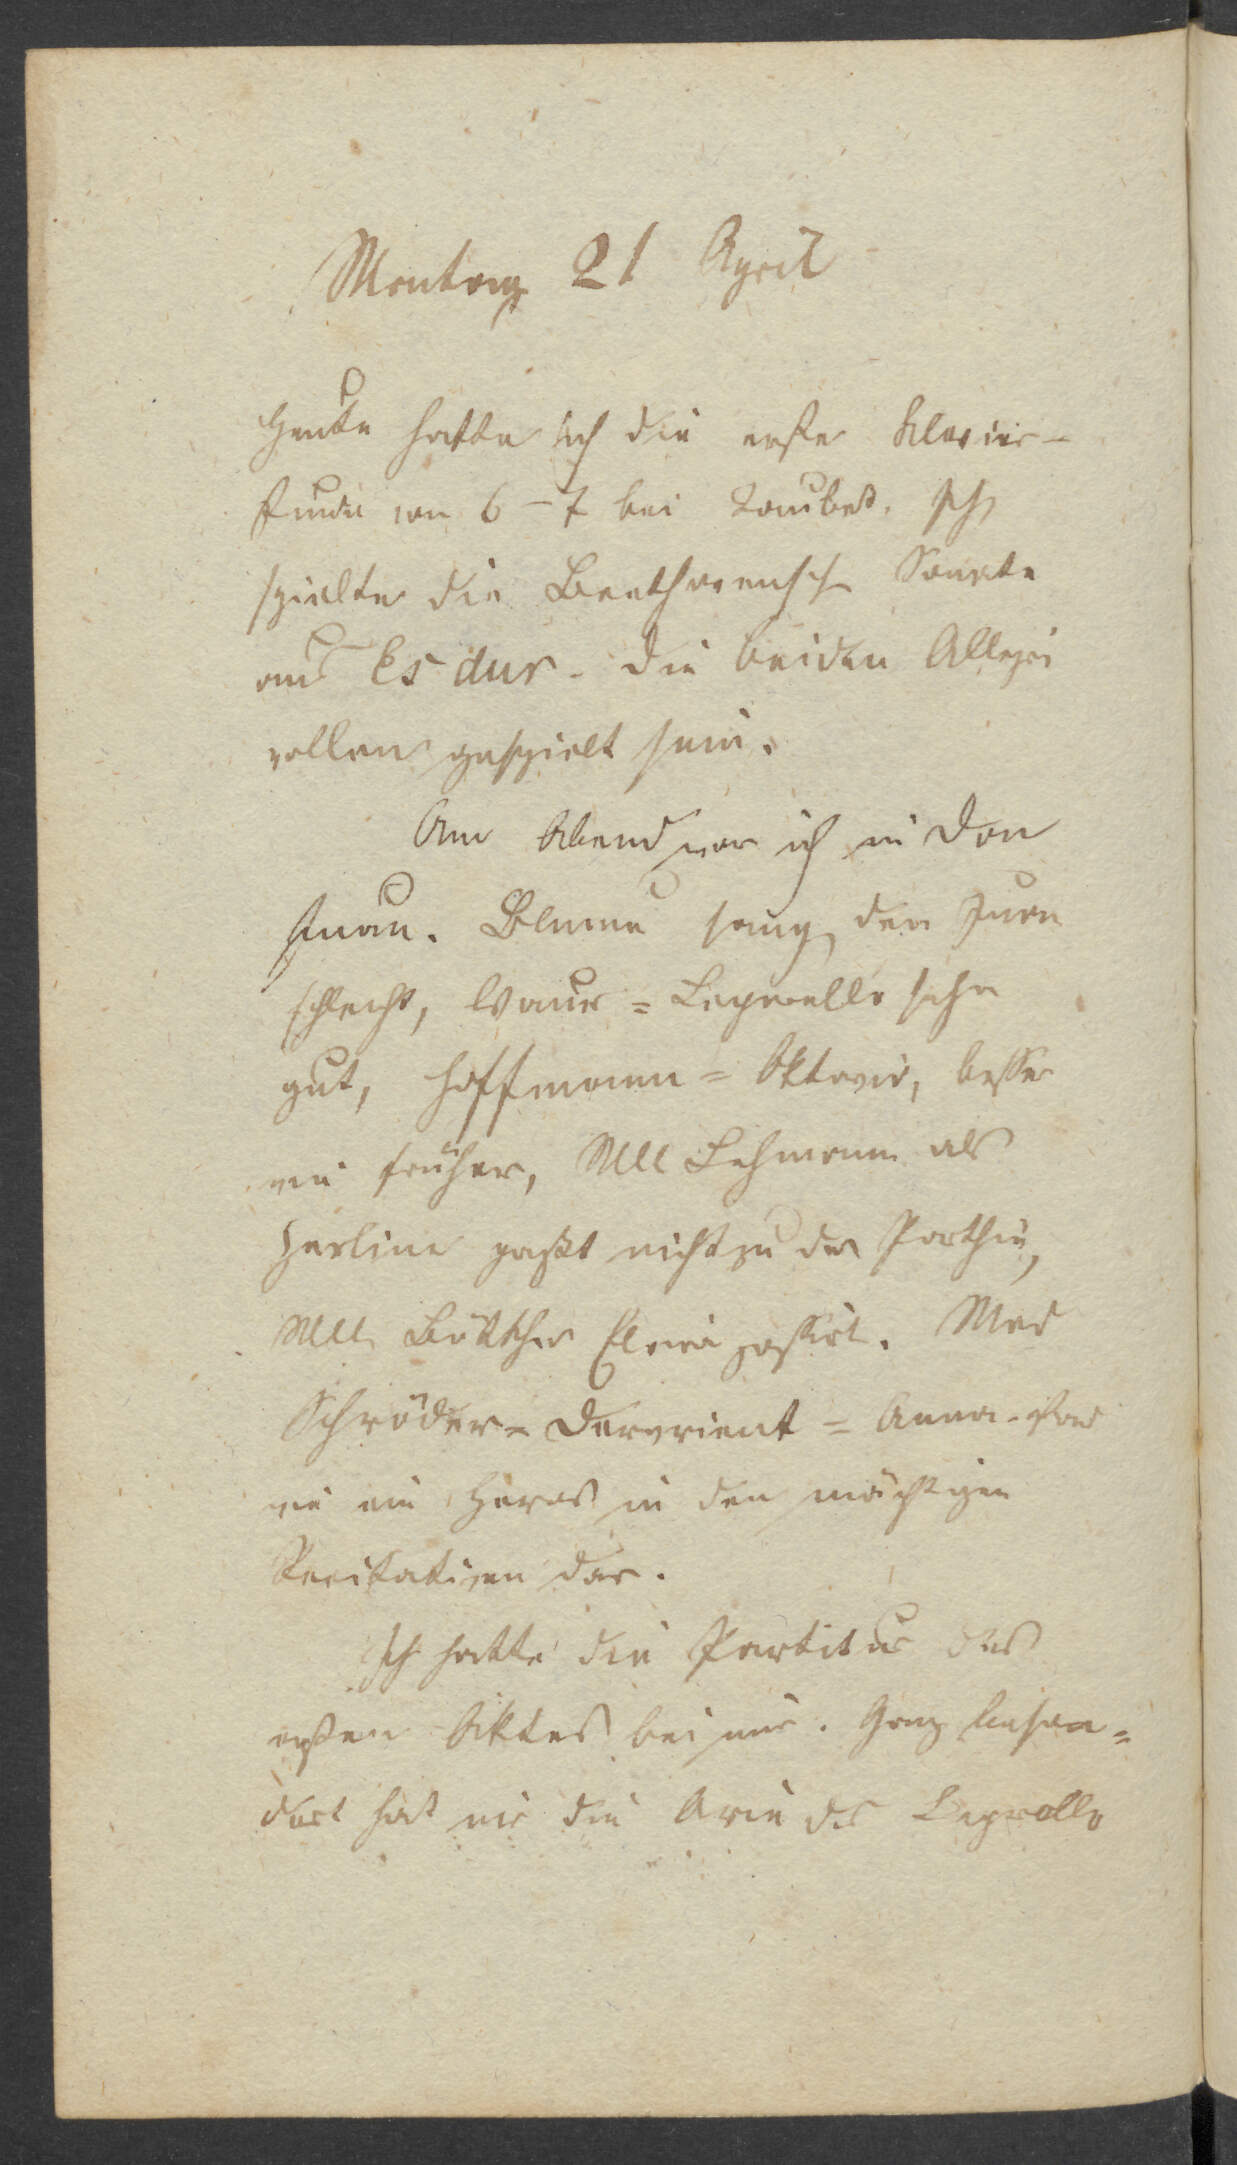 Montag 21 April
Heute hatte ich die erste Klavier-
stunde von 6-7 bei Taubert. Ich
spielte die Beethovensche Sonate
aus Es dur. Die beiden Allegri
wollen gespielt sein.
Am Abend war ich in Don
Juan. Blume sang den Juan
schlecht, Wauer = Leporello sehr
gut, Hoffmann = Oktavio, besser
wie früher, Mll Lehmann als
Zerline paßt nicht zu der Parthie,
Mll Böttcher Elvira passirt. Mad
Schröder-Devrient = Anna stand
wie ein Heros in den mächtigen
Recitativen da.
Ich hatte die Partitur des
ersten Aktes bei mir. Ganz
hat mir die Arie des Leporello